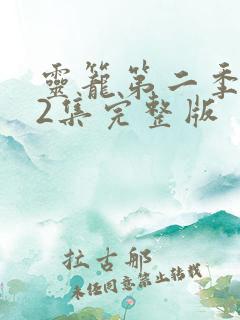 靈籠第二季
2集完整版
拉古邮
未经同意禁止转载